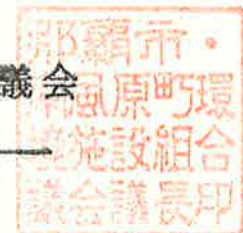 議会
一
那覇市・
南風原町環
境施設組合
議会議長印